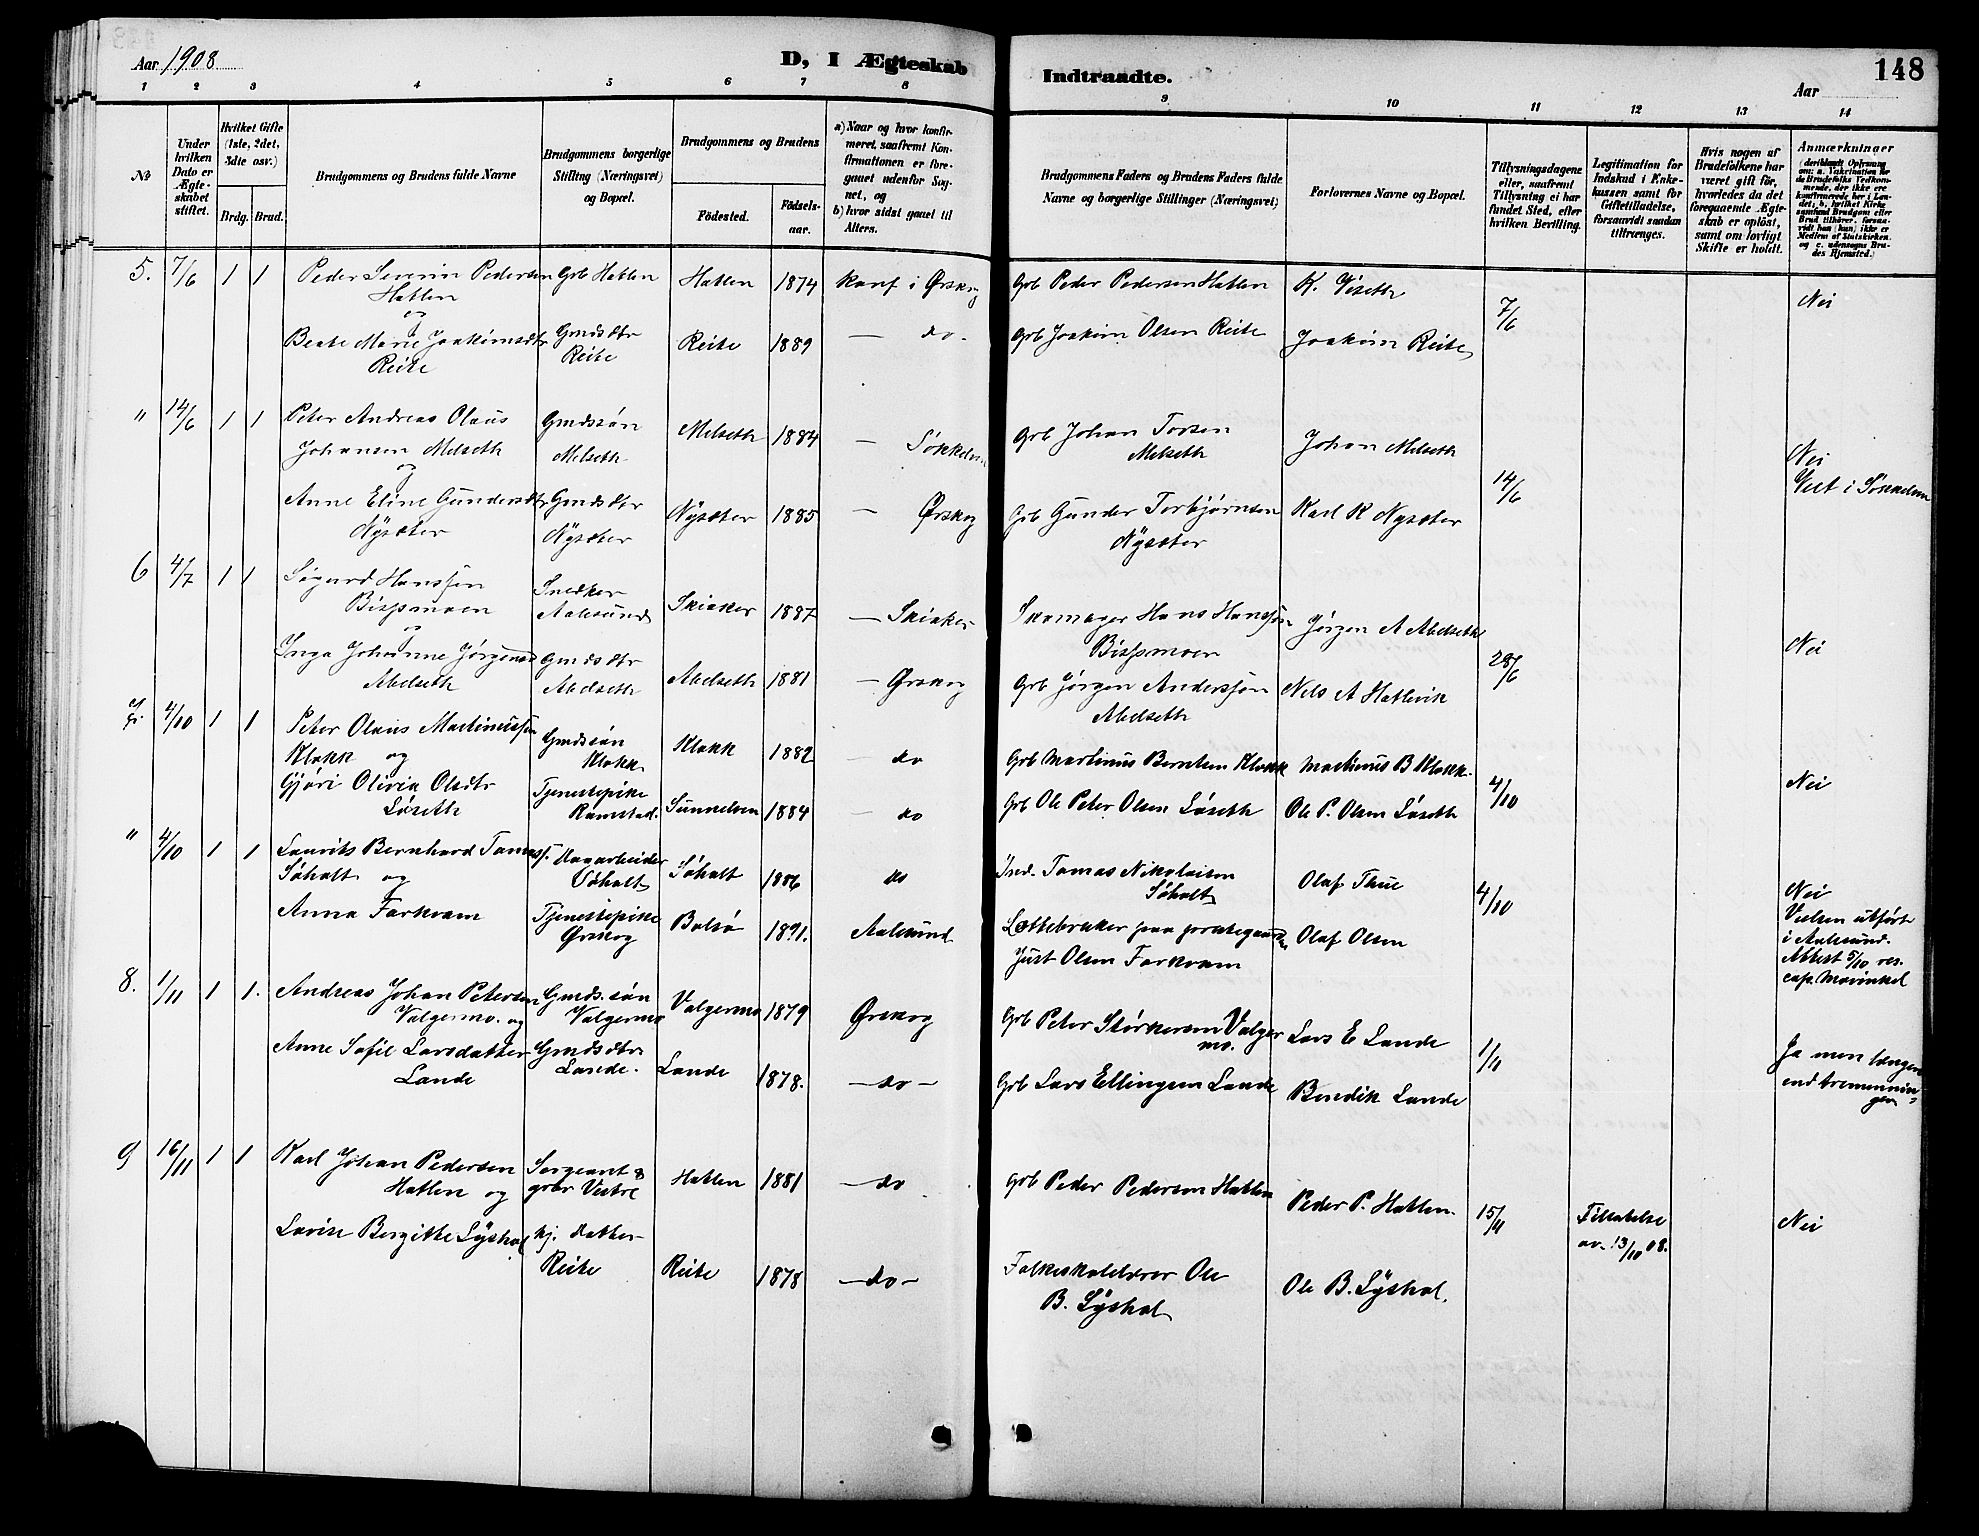 Aar 1908
D, I Ægteskab
Indtraadte.
148
Aar
1 2 3 4 5 6 7 8 9 10 11 12 13 14
No
Under hvilken Dato er Ægteskabet stiftet.
Hvilket Gifte (1ste, 2det, 3die osv.)
Brdg. Brud.
Brudgommens og Brudens fulde Navne
Brudgommens borgerlige Stilling (Næringsvei) og Bopæl.
Brudgommens og Brudens
Födested.
Födselsaar.
a) Naar og hvor konfirmeret, saafremt Konfirmationen er foregaaet udenfor Sognet, og
b) hvor sidst gaaet til Alters.
Brudgommens Faders og Brudens Faders fulde Navne og borgerlige Stillinger (Næringsvei)
Forlovernes Navne og Bopæl.
Tillysningsdagene eller, saafremt Tillysning ei har fundet Sted, efter hvilken Bevilling.
Legitimation for Indskud i Enkekassen samt for Giftetilladelse, forsaavidt saadan tiltrænges.
Hvis nogen af Brudefolkene har været gift för, hvorledes da det foregaaende Ægteskab er oplöst, samt om lovligt Skifte er holdt.
Anmærkninger
5. 7/6 1 1 Peder Severin Pedersen Grb Hatlen Hatlen 1874 konf i Ørskog Grb Peder Pedersen Hatlen K. Viseth 7/6 Nei
Hatlen
og
Beate Marie Joakimsdtr Gmdsdtr Reite 1889 — do. Grb Joakim Olsen Reite Joakim Reite
Reite Reite
" 14/6 1 1 Peter Andreas Olaus Gmdssøn Melseth 1884 — Søkkelven Grb Johan Torsen Johan Melseth 14/6 Nei
Johansen Melseth Melseth Melseth Viet i Søkkelven
og
Anne Eline Gundersdtr Gmdsdtr Nysæter 1885 — Ørskog Grb Gunder Torbjørnsen Karl K Nysæter
Nysæter Nysæter Nysæter
6 4/7 1 1 Sigurd Hanssen Snedker Skiaker 1887 — Skiaker Skomager Hans Hanssen Jørgen A Abelseth 28/6 Nei
Bispmoen Aalesund Bispmoen
og
Inga Johanne Jørgensd Gmdsdtr Abelseth 1881 — Ørskog Grb Jørgen Anderssen Nils A Hatlevik
Abelseth Abelseth Abelseth
7. 4/10 1 1 Peter Olaus Martinussen Gmdssøn Klokk 1882 — do Grb Martinus Berntsen Klokk Martinus B Klokk. 4/10 Nei
Klokk og Klokk
Gjøri Olivia Olsdtr Tjenestepike Sunnelven 1884 — do Grb Ole Peter Olsen Løseth Ole P. Olsen Løseth
Løseth Ramstad.
" 4/10 1 1 Laurits Bernhard Tomass. Dagarbeider Søholt 1886 do Ind. Tomas Nikolaisen Olaf Thue 4/10 Nei
Søholt og Søholt Søholt Vielsen utført
Anna Farkvam Tjenestepike Bolsø 1891. Aalesund Olaf Olsen i Aalesund.
Ørskog Just Olsen Farkvam Attest 5/10 res. cap.
8. 1/11 1 1. Andreas Johan Petersen Gmds.søn Valgermo 1879 Ørskog Grb Peter Størkersen Valgermo. Lars E Lande 1/11 Ja men længer
Valgermo. og Valgermo end tremennin-
Anne Sofie Larsdatter Gmdsdtr Lande 1878. — do — Grb Lars Ellingsen Lande Benedik Lande gen
Lande
9 16/11 1 1 Karl Johan Pedersen Sergeant & Hatlen 1881 — do Grb Peder Pedersen Hatlen Peder P. Hatlen. 15/11 Tillatelse Nei
Hatlen og grbr Vestre av 13/10 08.
Lovise Bergitte Lyshol kj. datter Reite 1878 — do — Folkeskolelærer Ole Ole B. Lyshol.
Reite B. Lyshol